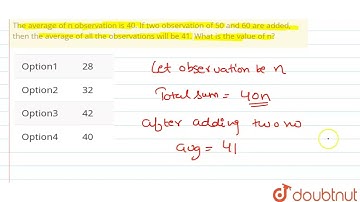 The average of n observation is 40. If two observation of 50 and 60 are added,
then the average of all the observations will be 41. What is the value of n?
Option1 28
Option2 32
Option3 42
Option4 40
Let observation be n
Total sum = 40n
After adding two no
avg = 41
doubtnut